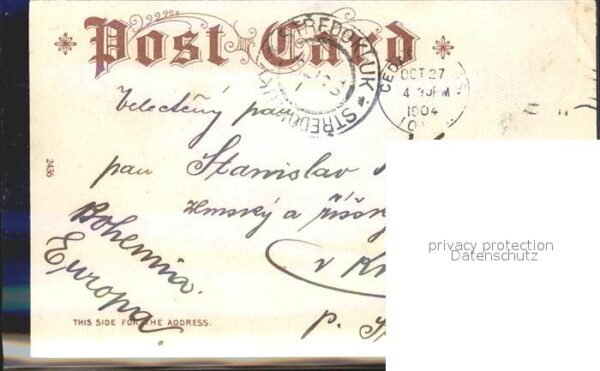 Post Card
STŘEDOKLUK * STŘEDOKLUKY
CEDAR
OCT 27
4 30PM
1904
Velectěný pan
pan Stanislav
Zemský a říšský
v
p.
Bohemia.
Europa.
2436
THIS SIDE FOR THE ADDRESS.
privacy protection
Datenschutz